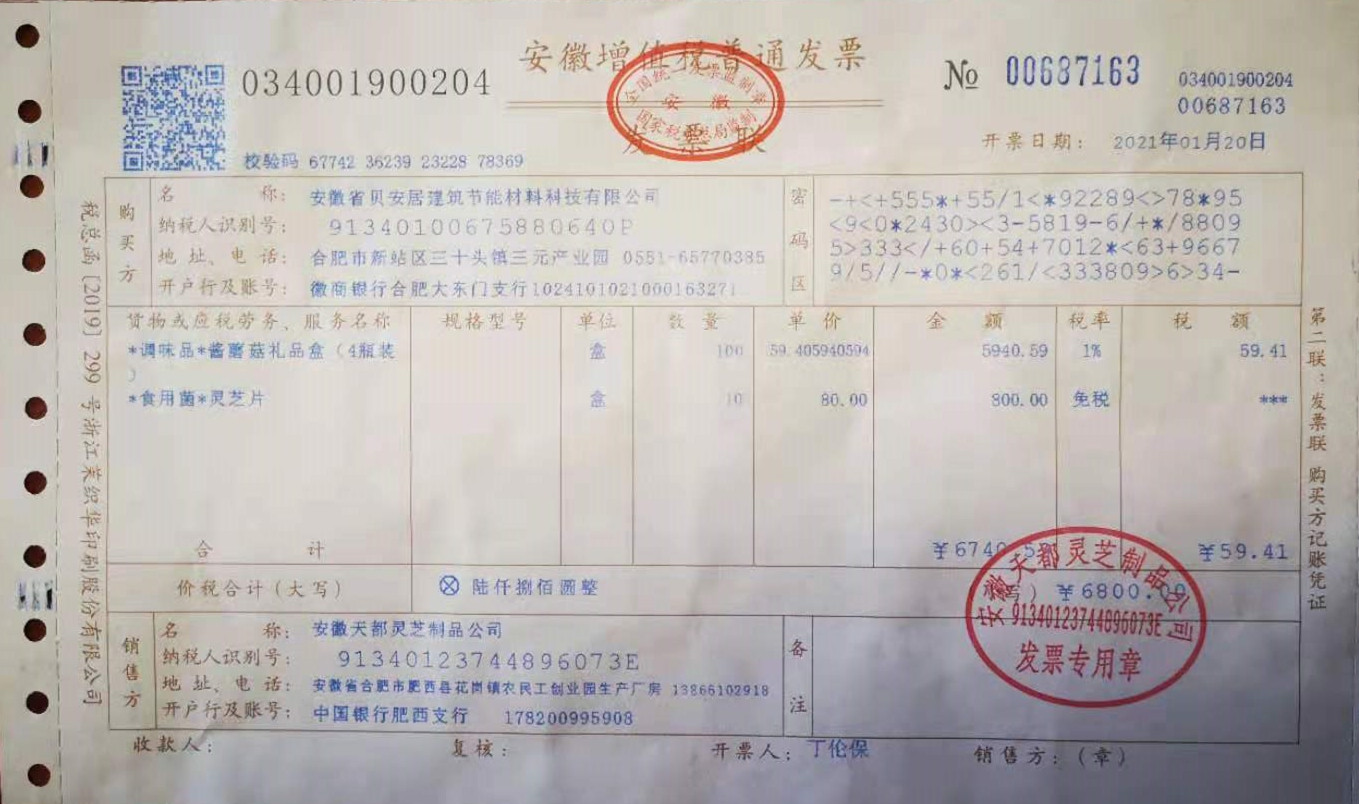 安徽增值税普通发票
发票联
全国统一发票监制章
安徽
国家税务总局监制
034001900204
№ 00687163
034001900204
00687163
校验码 67742 36239 23228 78369
开票日期： 2021年01月20日
购买方
名称： 安徽省贝安居建筑节能材料科技有限公司
纳税人识别号： 91340100675880640P
地址、电话： 合肥市新站区三十头镇三元产业园 0551-65770385
开户行及账号： 徽商银行合肥大东门支行1024101021000163271
密码区
-+<+555*+55/1<*92289<>78*95
<9<0*2430><3-5819-6/+*/8809
5>333</+60+54+7012*<63+9667
9/5//-*0*<261/<333809>6>34-
货物或应税劳务、服务名称 规格型号 单位 数量 单价 金额 税率 税额
*调味品*酱蘑菇礼品盒（4瓶装 盒 100 59.405940594 5940.59 1% 59.41
）
*食用菌*灵芝片 盒 10 80.00 800.00 免税 ***
合计 ￥6740.59 ￥59.41
价税合计（大写） ⊗ 陆仟捌佰圆整 ￥6800.00
销售方
名称： 安徽天都灵芝制品公司
纳税人识别号： 91340123744896073E
地址、电话： 安徽省合肥市肥西县花岗镇农民工创业园生产厂房 13866102918
开户行及账号： 中国银行肥西支行 178200995908
备注
安徽天都灵芝制品公司
91340123744896073E
发票专用章
收款人： 复核： 开票人： 丁伦保 销售方：（章）
税总函［2019］299号浙江莱织华印刷股份有限公司
第二联：发票联 购买方记账凭证